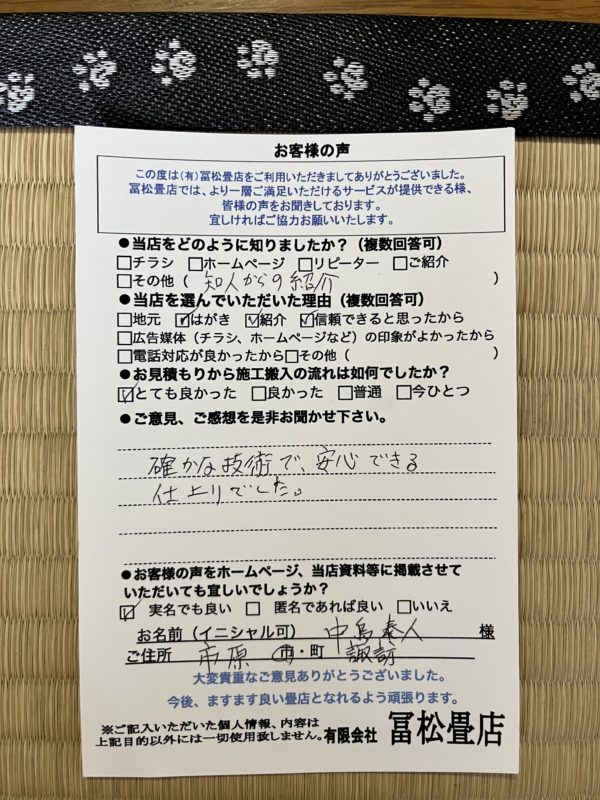 お客様の声
この度は(有)冨松畳店をご利用いただきましてありがとうございました。
冨松畳店では、より一層ご満足いただけるサービスが提供できる様、
皆様の声をお聞きしております。
宜しければご協力お願いいたします。
●当店をどのように知りましたか？（複数回答可）
□チラシ □ホームページ □リピーター □ご紹介
□その他（ 知人からの紹介 ）
●当店を選んでいただいた理由（複数回答可）
□地元 ☑はがき ☑紹介 ☑信頼できると思ったから
□広告媒体（チラシ、ホームページなど）の印象がよかったから
□電話対応が良かったから□その他（ ）
●お見積もりから施工搬入の流れは如何でしたか？
☑とても良かった □良かった □普通 □今ひとつ
●ご意見、ご感想を是非お聞かせ下さい。
確かな技術で、安心できる
仕上りでした。
●お客様の声をホームページ、当店資料等に掲載させて
いただいても宜しいでしょうか？
☑ 実名でも良い □ 匿名であれば良い □いいえ
お名前（イニシャル可） 中島泰人 様
ご住所 市原 市・町 諏訪
大変貴重なご意見ありがとうございました。
今後、ますます良い畳店となれるよう頑張ります。
※ご記入いただいた個人情報、内容は
上記目的以外には一切使用致しません。有限会社 冨松畳店